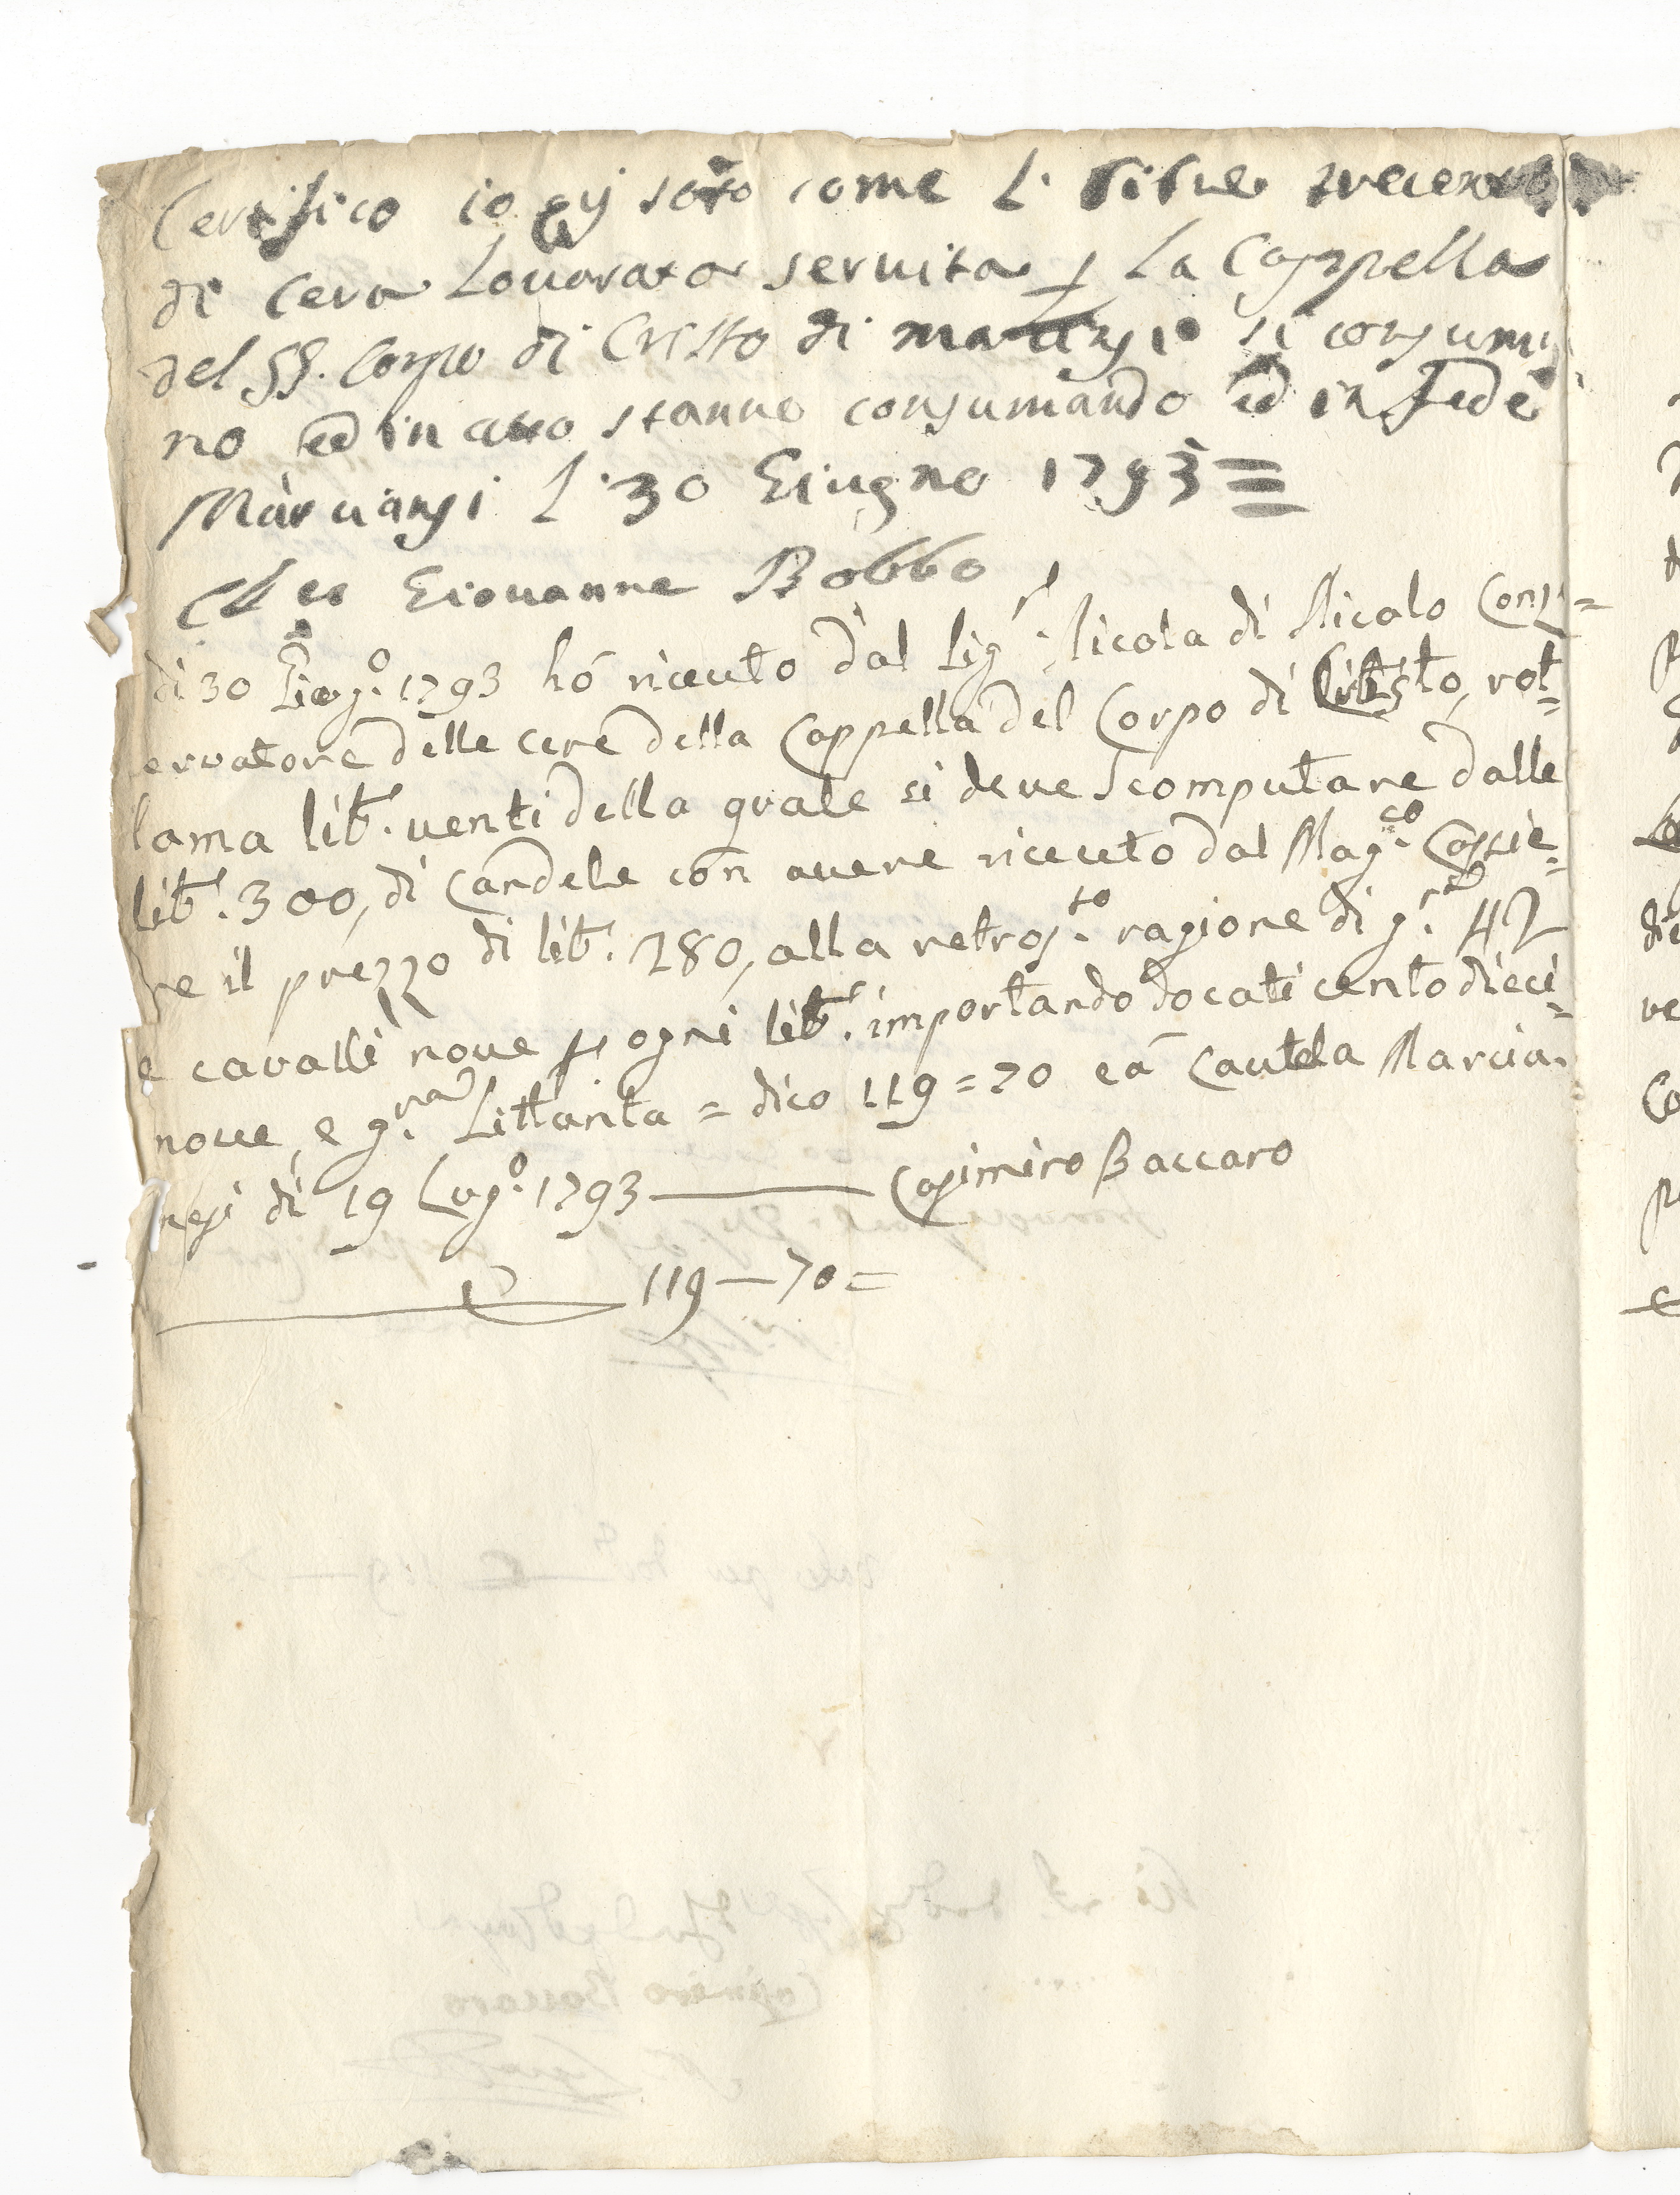 Certifico io qui sotto come L. Libre trecento
di Cera Lovorata servita p la Cappella
del SS. Corpo di Cristo di si consuma
no ed in atto stanno consumando ed in fede
Marciansi L. 30 Giugno 1793 =
Giovanne Bobbo
di 30 Giug.o 1793 hó riceuto dal Sig.r Nicola di Nicalo Cons=
ervatore delle cere della Cappella del Corpo di Cristo, rot=
tama lib.e venti della quale si deve scomputare dalle
lib.e 300, di Candele con avere riceuto dal Mag.co Cassie=
re il prezzo di lib.e 280, alla retros.to ragione di g.na 42
e cavalli nove p ogni lib.e importando docati cento dieci=
nove, e g.na Sittanta = dico 119=70 e á Cautela Marcia.
nesi di 19 Lug.o 1793 — Casimiro Baccaro
119—70=